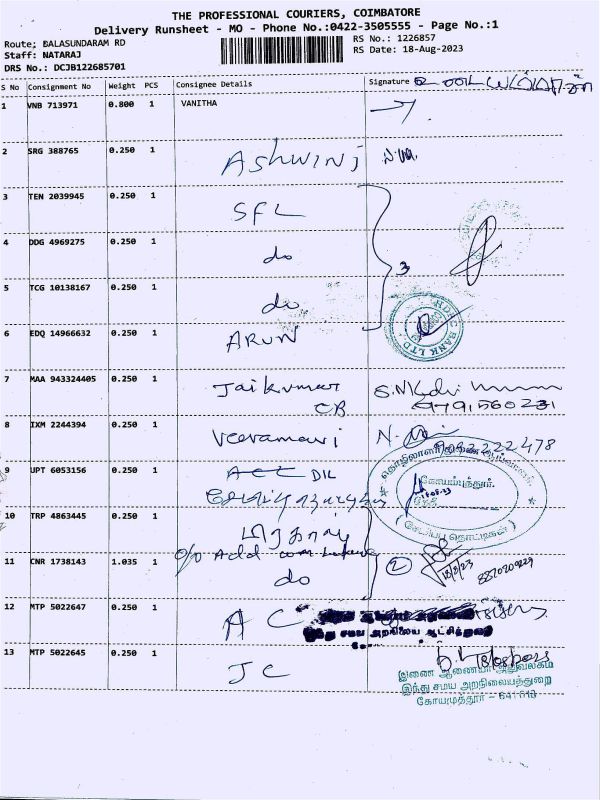 THE PROFESSIONAL COURIERS, COIMBATORE
Delivery Runsheet - MO - Phone No.:0422-3505555 - Page No.:1
Route; BALASUNDARAM RD
RS No.: 1226857
Staff: NATARAJ
RS Date: 18-Aug-2023
DRS No.: DCJB122685701
S No Consignment No Weight PCS Consignee Details Signature
1 VNB 713971 0.800 1 VANITHA
2 SRG 388765 0.250 1 Ashwini
3 TEN 2039945 0.250 1 SFL
4 DDG 4969275 0.250 1 do
3
5 TCG 10138167 0.250 1 do
6 EDQ 14966632 0.250 1 ARUN
HDFC BANK LTD
7 MAA 943324405 0.250 1 Jaikumar
CB
8 IXM 2244394 0.250 1 Veeramani
9 UPT 6053156 0.250 1 ACL DIL
கோயம்புத்தூர்.
10 TRP 4863445 0.250 1
O/o Add
11 CNR 1738143 1.035 1 do 2 18/8/23 8870209229
12 MTP 5022647 0.250 1 AC
இந்து சமய அறநிலைய ஆட்சித்துறை
13 MTP 5022645 0.250 1 JC
இணை ஆணையர் அலுவலகம்
இந்து சமய அறநிலையத்துறை
கோயமுத்தூர் - 641 018